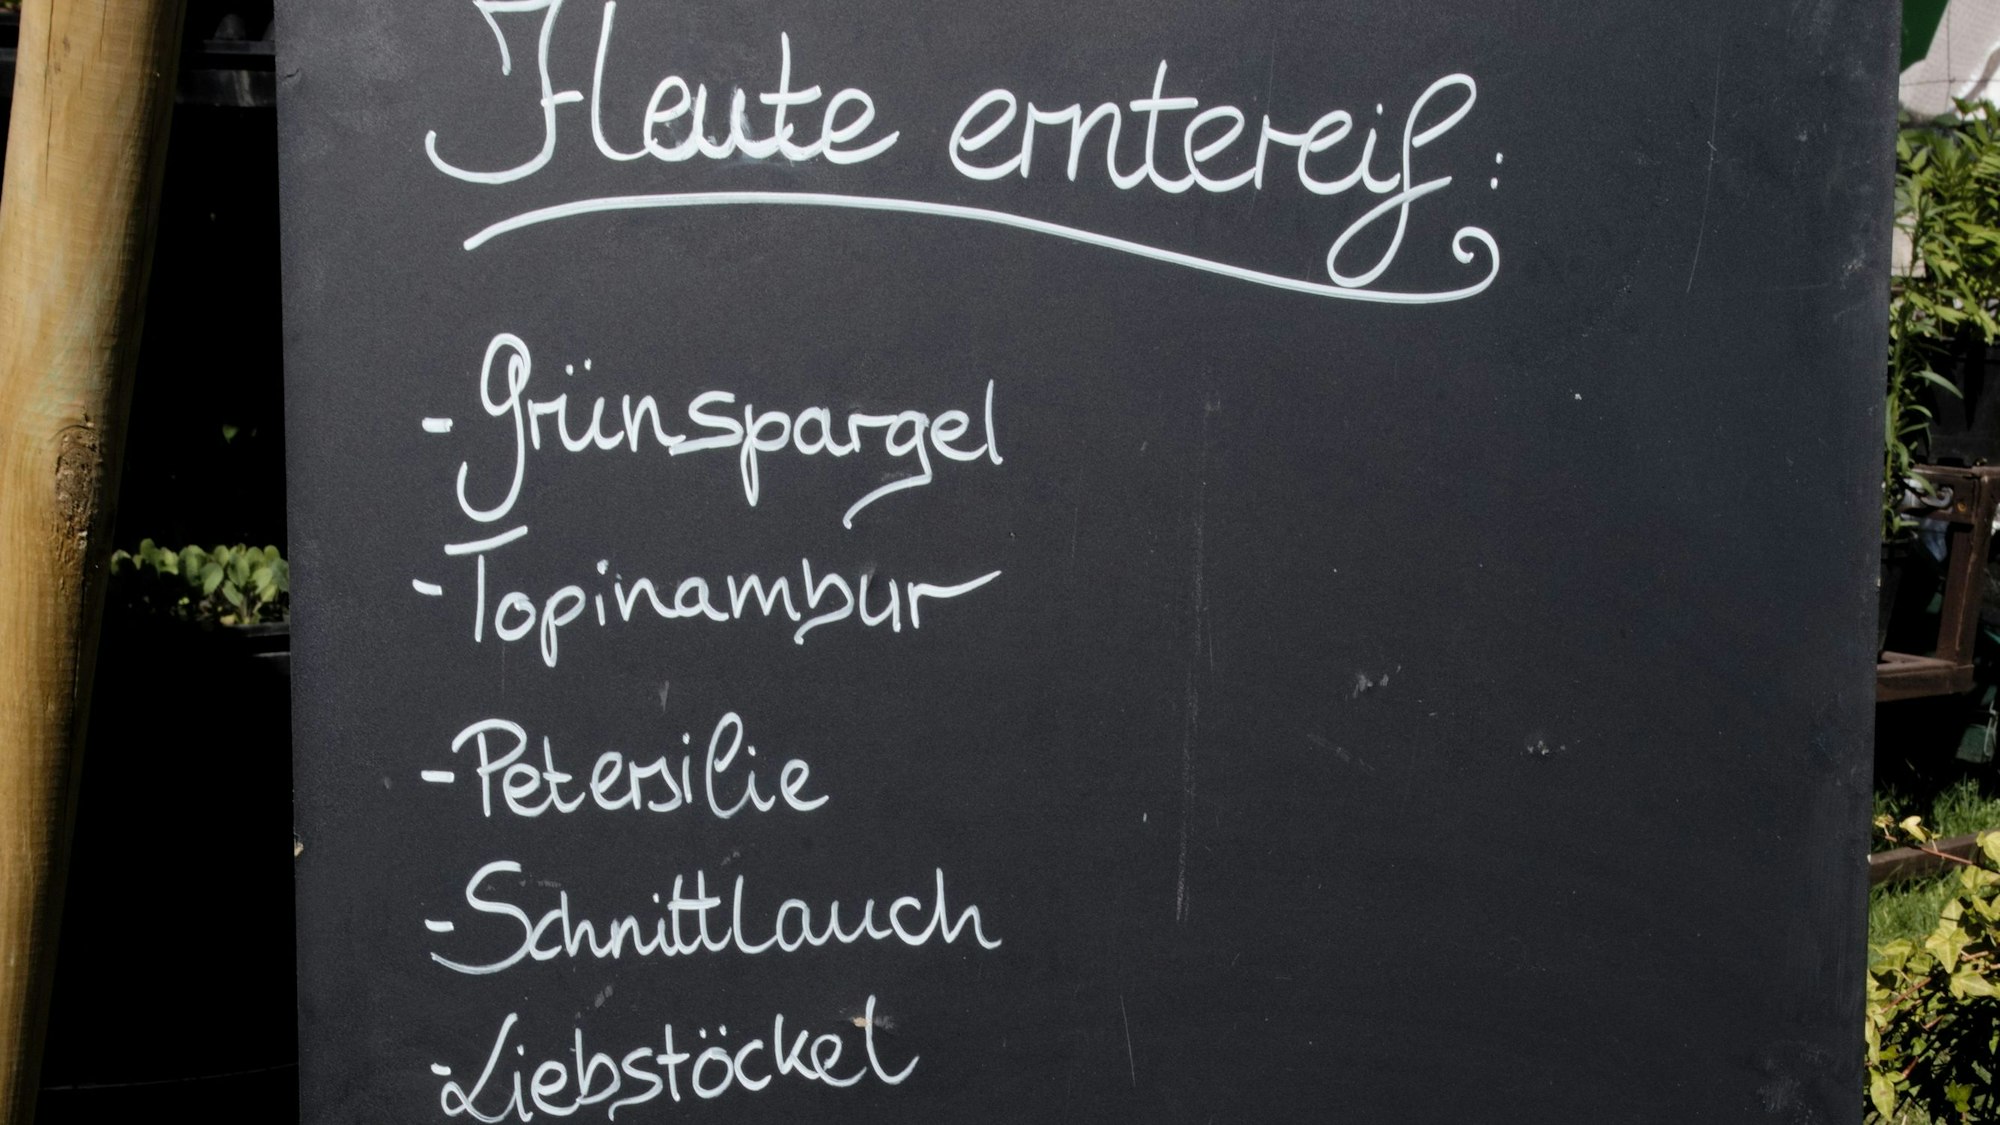 Heute erntereif:
- Grünspargel
- Topinambur
- Petersilie
- Schnittlauch
- Liebstöckel